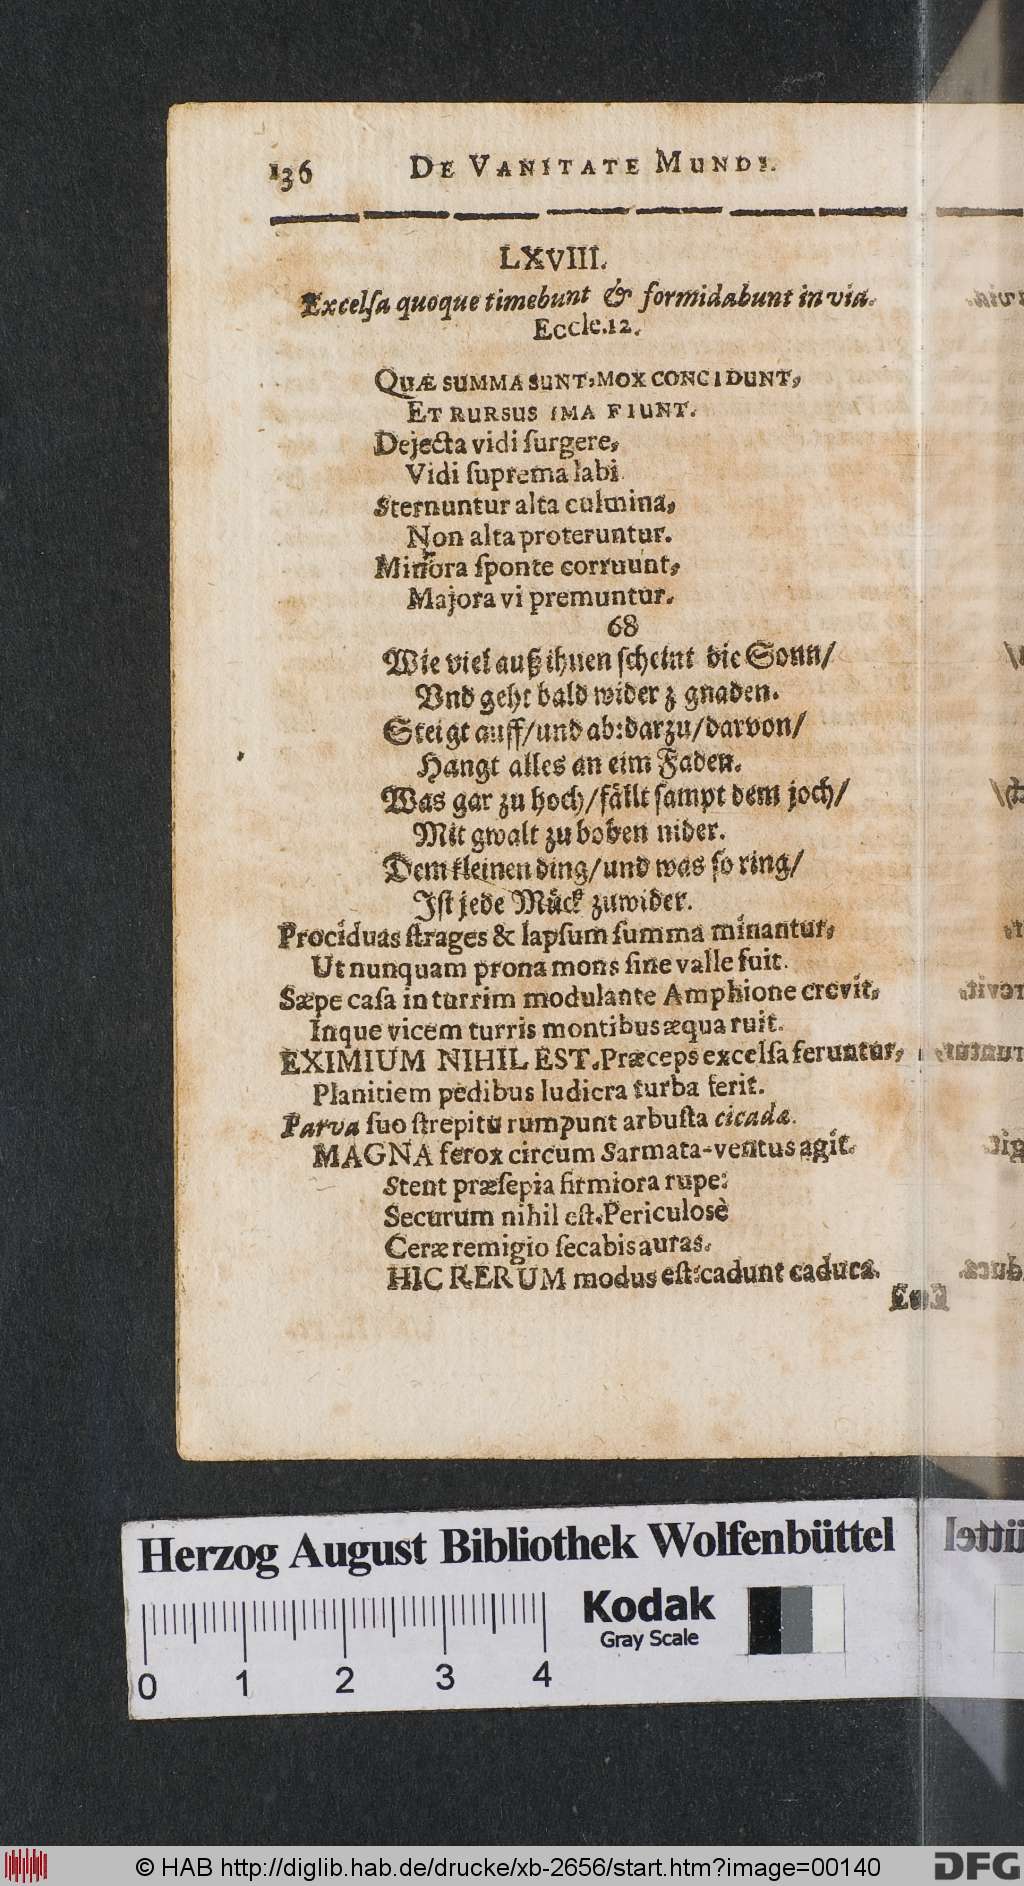 136 DE VANITATE MUNDI.
LXVIII.
Excelſa quoque timebunt & formidabunt in via.
Eccle.12.
QUÆ SUMMA SUNT, MOX CONCIDUNT,
ET RURSUS IMA FIUNT.
Dejecta vidi ſurgere,
Vidi ſuprema labi.
Sternuntur alta culmina,
Non alta proteruntur.
Minora ſponte corruunt,
Majora vi premuntur.
68
Wie viel auß ihnen ſcheint die Sonn/
Vnd geht bald wider z gnaden.
Steigt auff/und ab:darzu/darvon/
Hangt alles an eim Faden.
Was gar zu hoch/fällt ſampt dem joch/
Mit gwalt zu boden nider.
Dem kleinen ding/und was ſo ring/
Iſt jede Mück zuwider.
Prociduas ſtrages & lapſum ſumma minantur,
Ut nunquam prona mons ſine valle fuit.
Sæpe caſa in turrim modulante Amphione crevit,
Inque vicem turris montibus æqua ruit.
EXIMIUM NIHIL EST. Præceps excelſa feruntur,
Planitiem pedibus ludicra turba ferit.
Parva ſuo ſtrepitu rumpunt arbuſta cicadæ.
MAGNA ferox circum Sarmata-ventus agit.
Stent præſepia firmiora rupe:
Securum nihil eſt. Periculosè
Ceræ remigio ſecabis auras.
HIC RERUM modus eſt: cadunt caduca.
Herzog August Bibliothek Wolfenbüttel
Kodak
Gray Scale
0 1 2 3 4
© HAB http://diglib.hab.de/drucke/xb-2656/start.htm?image=00140
DFG